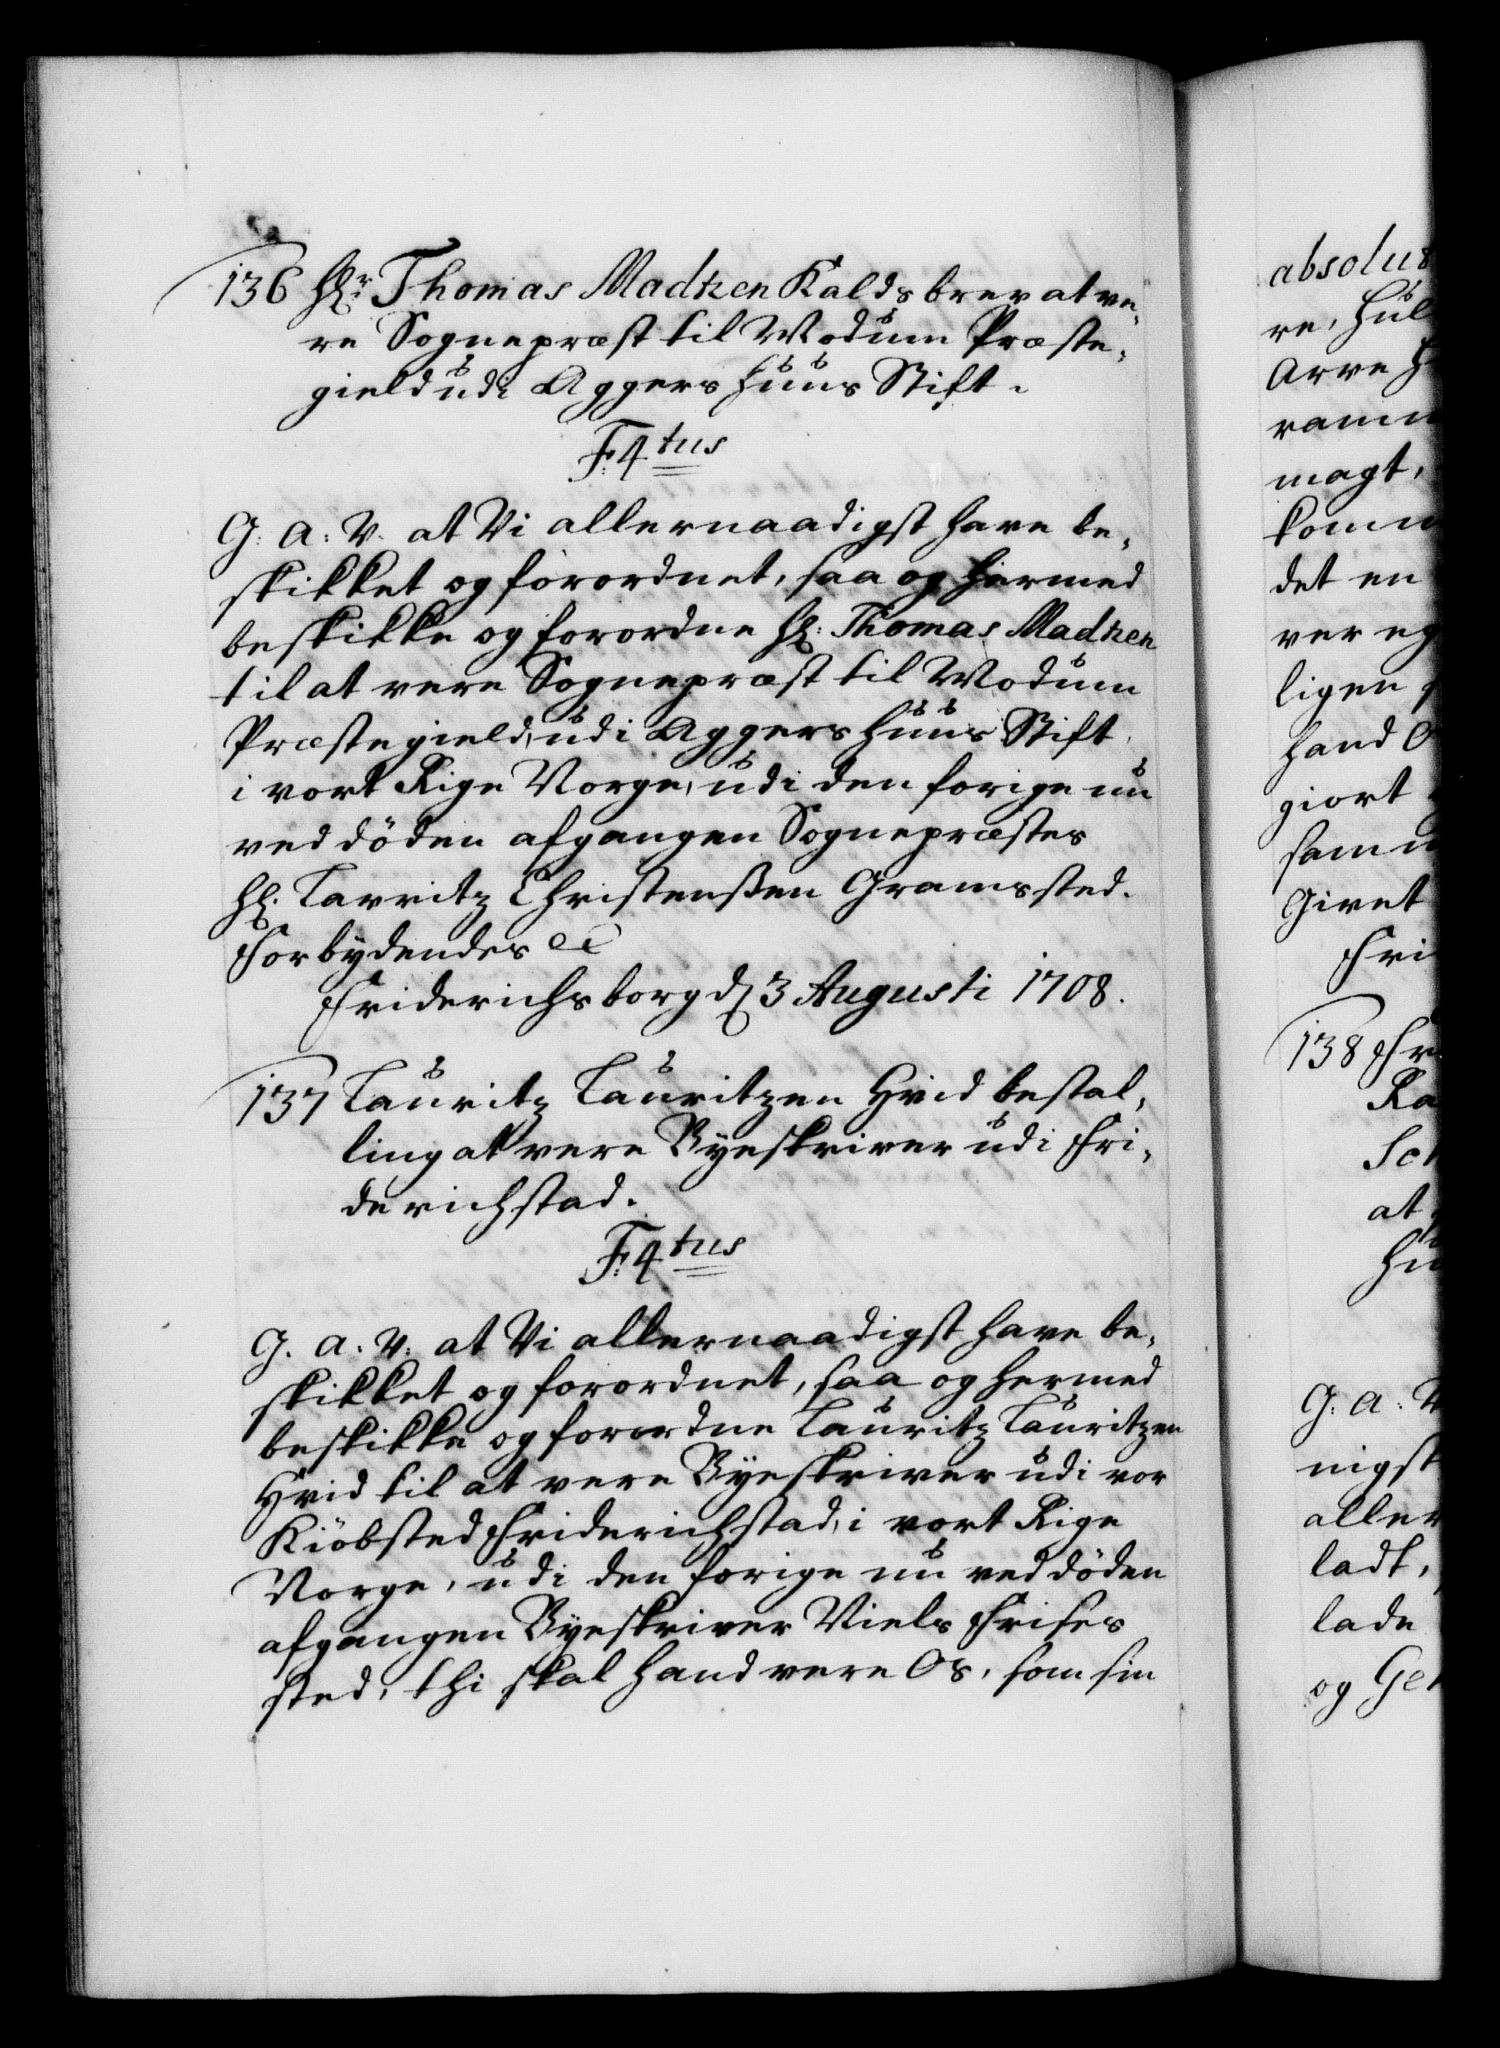 136 Hr. Thomas Madtzen Kalds brev at ve-
re Sognepræst til Modum Præste-
gield udi Aggershuus Stift.
F: 4tus
G: A: V. at Vi allernaadigst have be-
skikket og forordnet, saa og hermed
beskikke og forordne Hr: Thomas Madtzen
til at vere Sognepræst til Modum
Præstegield, udi Aggershuus Stift
i vort Rige Norge, udi den forige nu
ved döden afgangen Sognepræstes
Hr. Lavritz Christenssen Grams sted.
Forbydendes etc
Friderichsborg d. 3 Augusti 1708.
137 Lauritz Lauritzen Hvid bestal-
ling at vere Byeskriver udi Fri-
derichstad.
F: 4tus
G. A. V: at Vi allernaadigst have be-
skikket og forordnet, saa og hermed
beskikke og forordne Lauritz Lauritzen
Hvid til at vere Byeskriver udi vor
Kiöbsted Friderichstad, i vort Rige
Norge, udi den forige nu ved döden
afgangen Byeskriver Niels Frises
sted, thi skal hand vere Os, som sin
absolu
re, Hul
Arve H
ramm
magt,
komm
det en
ver eg
ligen
hand O
giort
samm
Givet
Fri
138 Fr
Ra
Sch
at
Hu
G: A: V
nigst
aller
ladt,
lade
og Ge